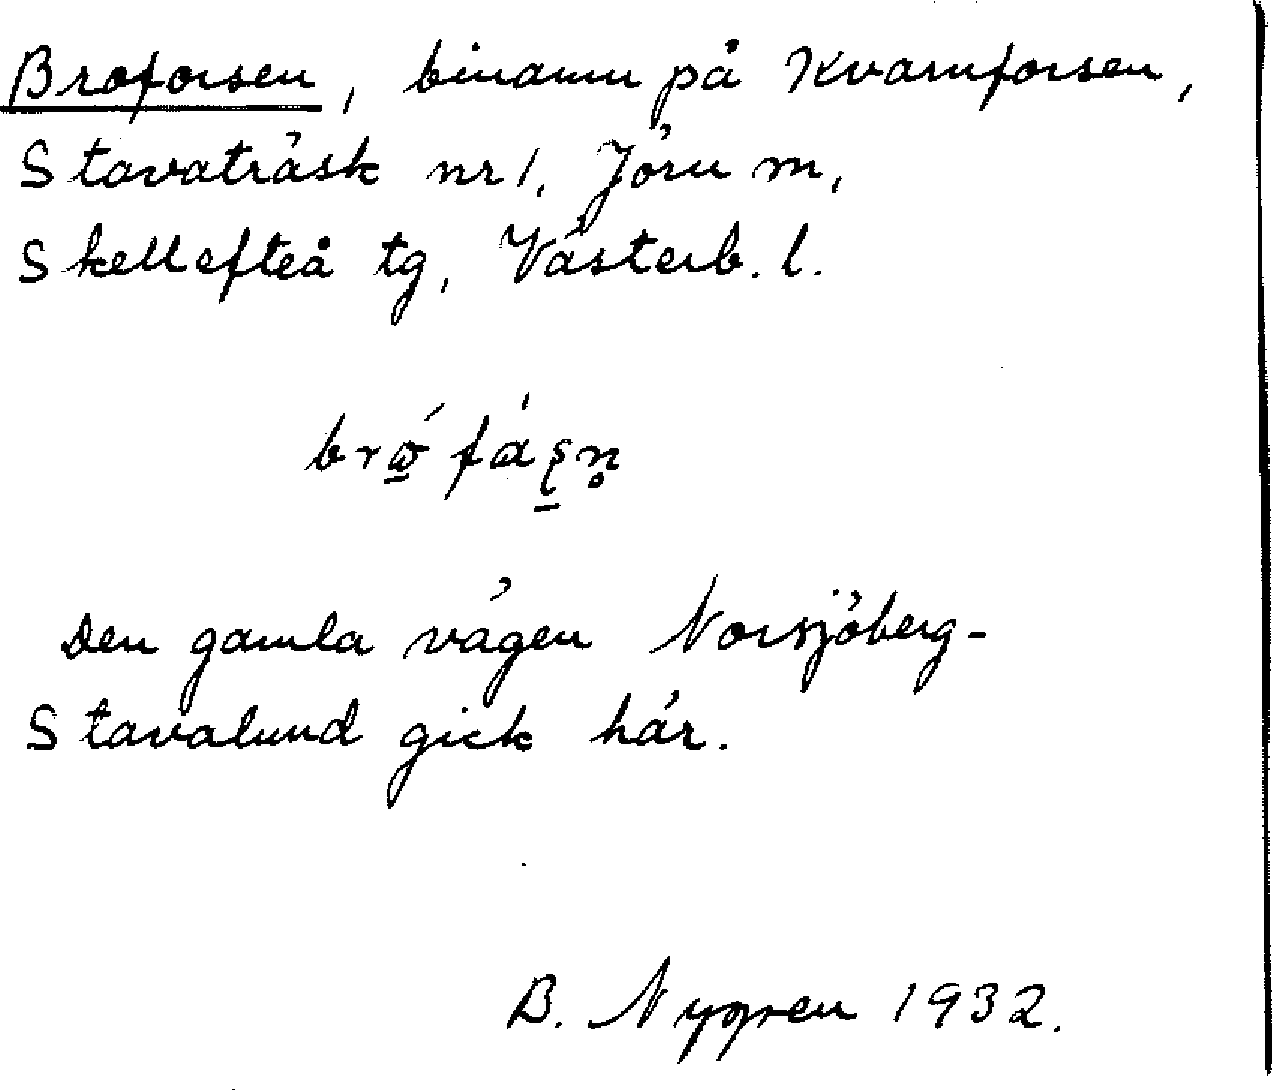 Broforsen, binamn på Kvarnforsen,
Stavaträsk nr 1, Jörn m,
Skellefteå tg, Västerb. l.
Den gamla vägen Norsjöberg-
Stavalund gick här.
B. Nygren 1932.